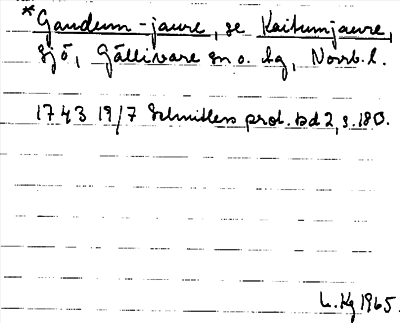 *Gaudum-jaure, se Kaitumjaure,
sjö, Gällivare sn o. lg, Norrb. l.
1743 19/7 Schnitlers prot. bd 2, s. 180.
L. Kg 1965.